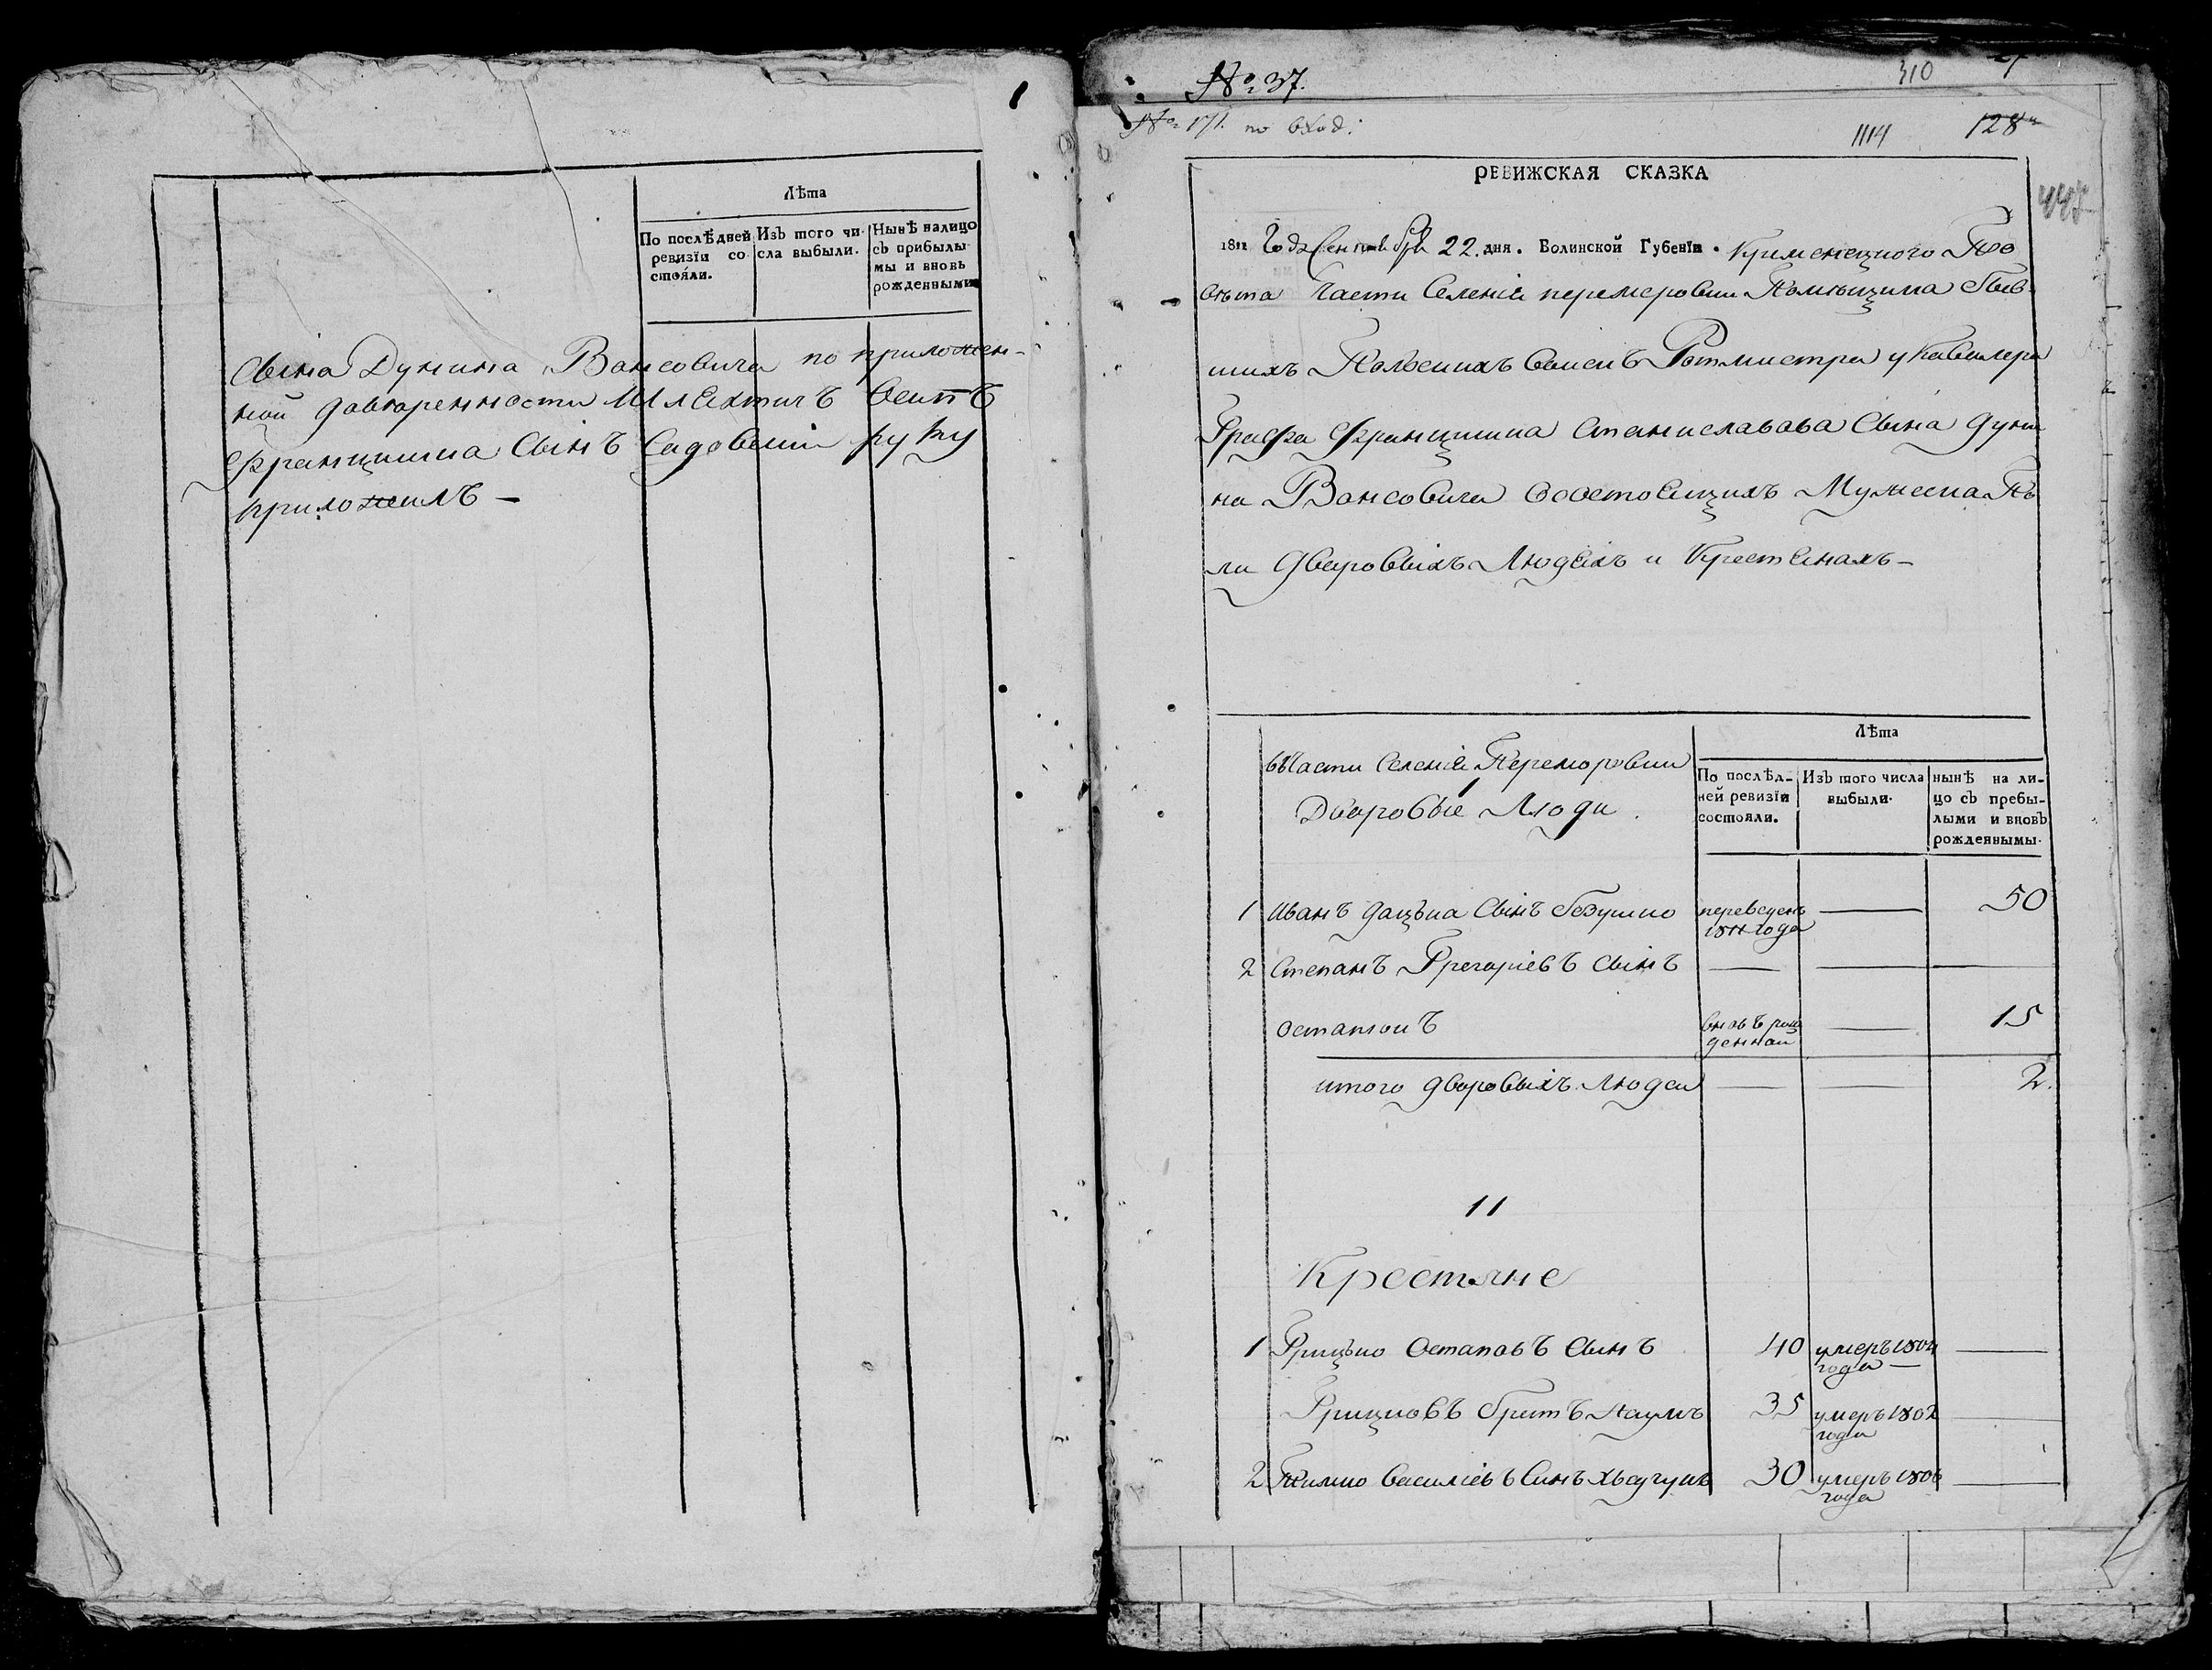 1
Лѣта
По послѣдней ревизіи состояли.
Изъ того числа выбыли.
Нынѣ налицо съ прибылымы и вновь рожденнымы
Сына Дунина Вонсовича по приложен-
ной доверенности Шляхтичъ
Францишка Сынъ Садовскій руку
приложилъ —
№ 37.
310
№ 171. по вход:
1114
128
РЕВИЖСКАЯ СКАЗКА
1811 Года Сентебря 22. дня. Волинской Губеніи. Кременецкого По
вѣта Части Селенія перемеровки Помѣщика Быв
шихъ Полскихъ Воискъ Ротмистра у Кавалера
Графа Францишка Станиславава Сына Дуни
на Вонсовича Состоящихъ Мужеска По
ла Дворовыхъ Людяхъ и Крестянахъ —
Лѣта
въ Части Селенія Переморовки
1
Дворовые Люди.
По послѣдней ревизіи состояли.
Изъ того числа выбыли.
нынѣ на лицо съ пребылыми и вновъ рожденнымы.
1 Иванъ Дацька Сынъ Безушко переведенъ 1811 года — 50
2 Степанъ Грегоріевъ Сынъ — — —
Остапюкъ вновъ рожденнай — 15
итого Дворовыхъ Людей — — 2.
11
Крестяне
1 Грицько Остаповъ Сынъ 40 умеръ 1804 года —
Грицковъ братъ Наумъ 35 умеръ 1802 года —
2 Василіевъ Синъ 30 умеръ 1806 года —